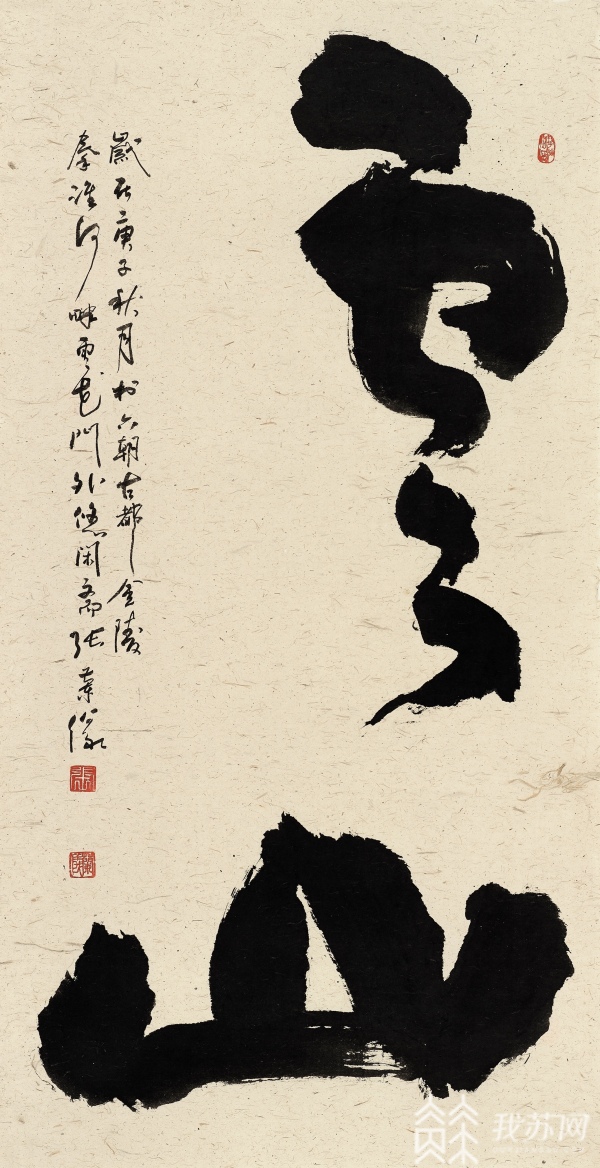 雲山
歲在庚子秋月於六朝古都金陵
秦淮河畔雨花門外悠閑齋張
我苏网